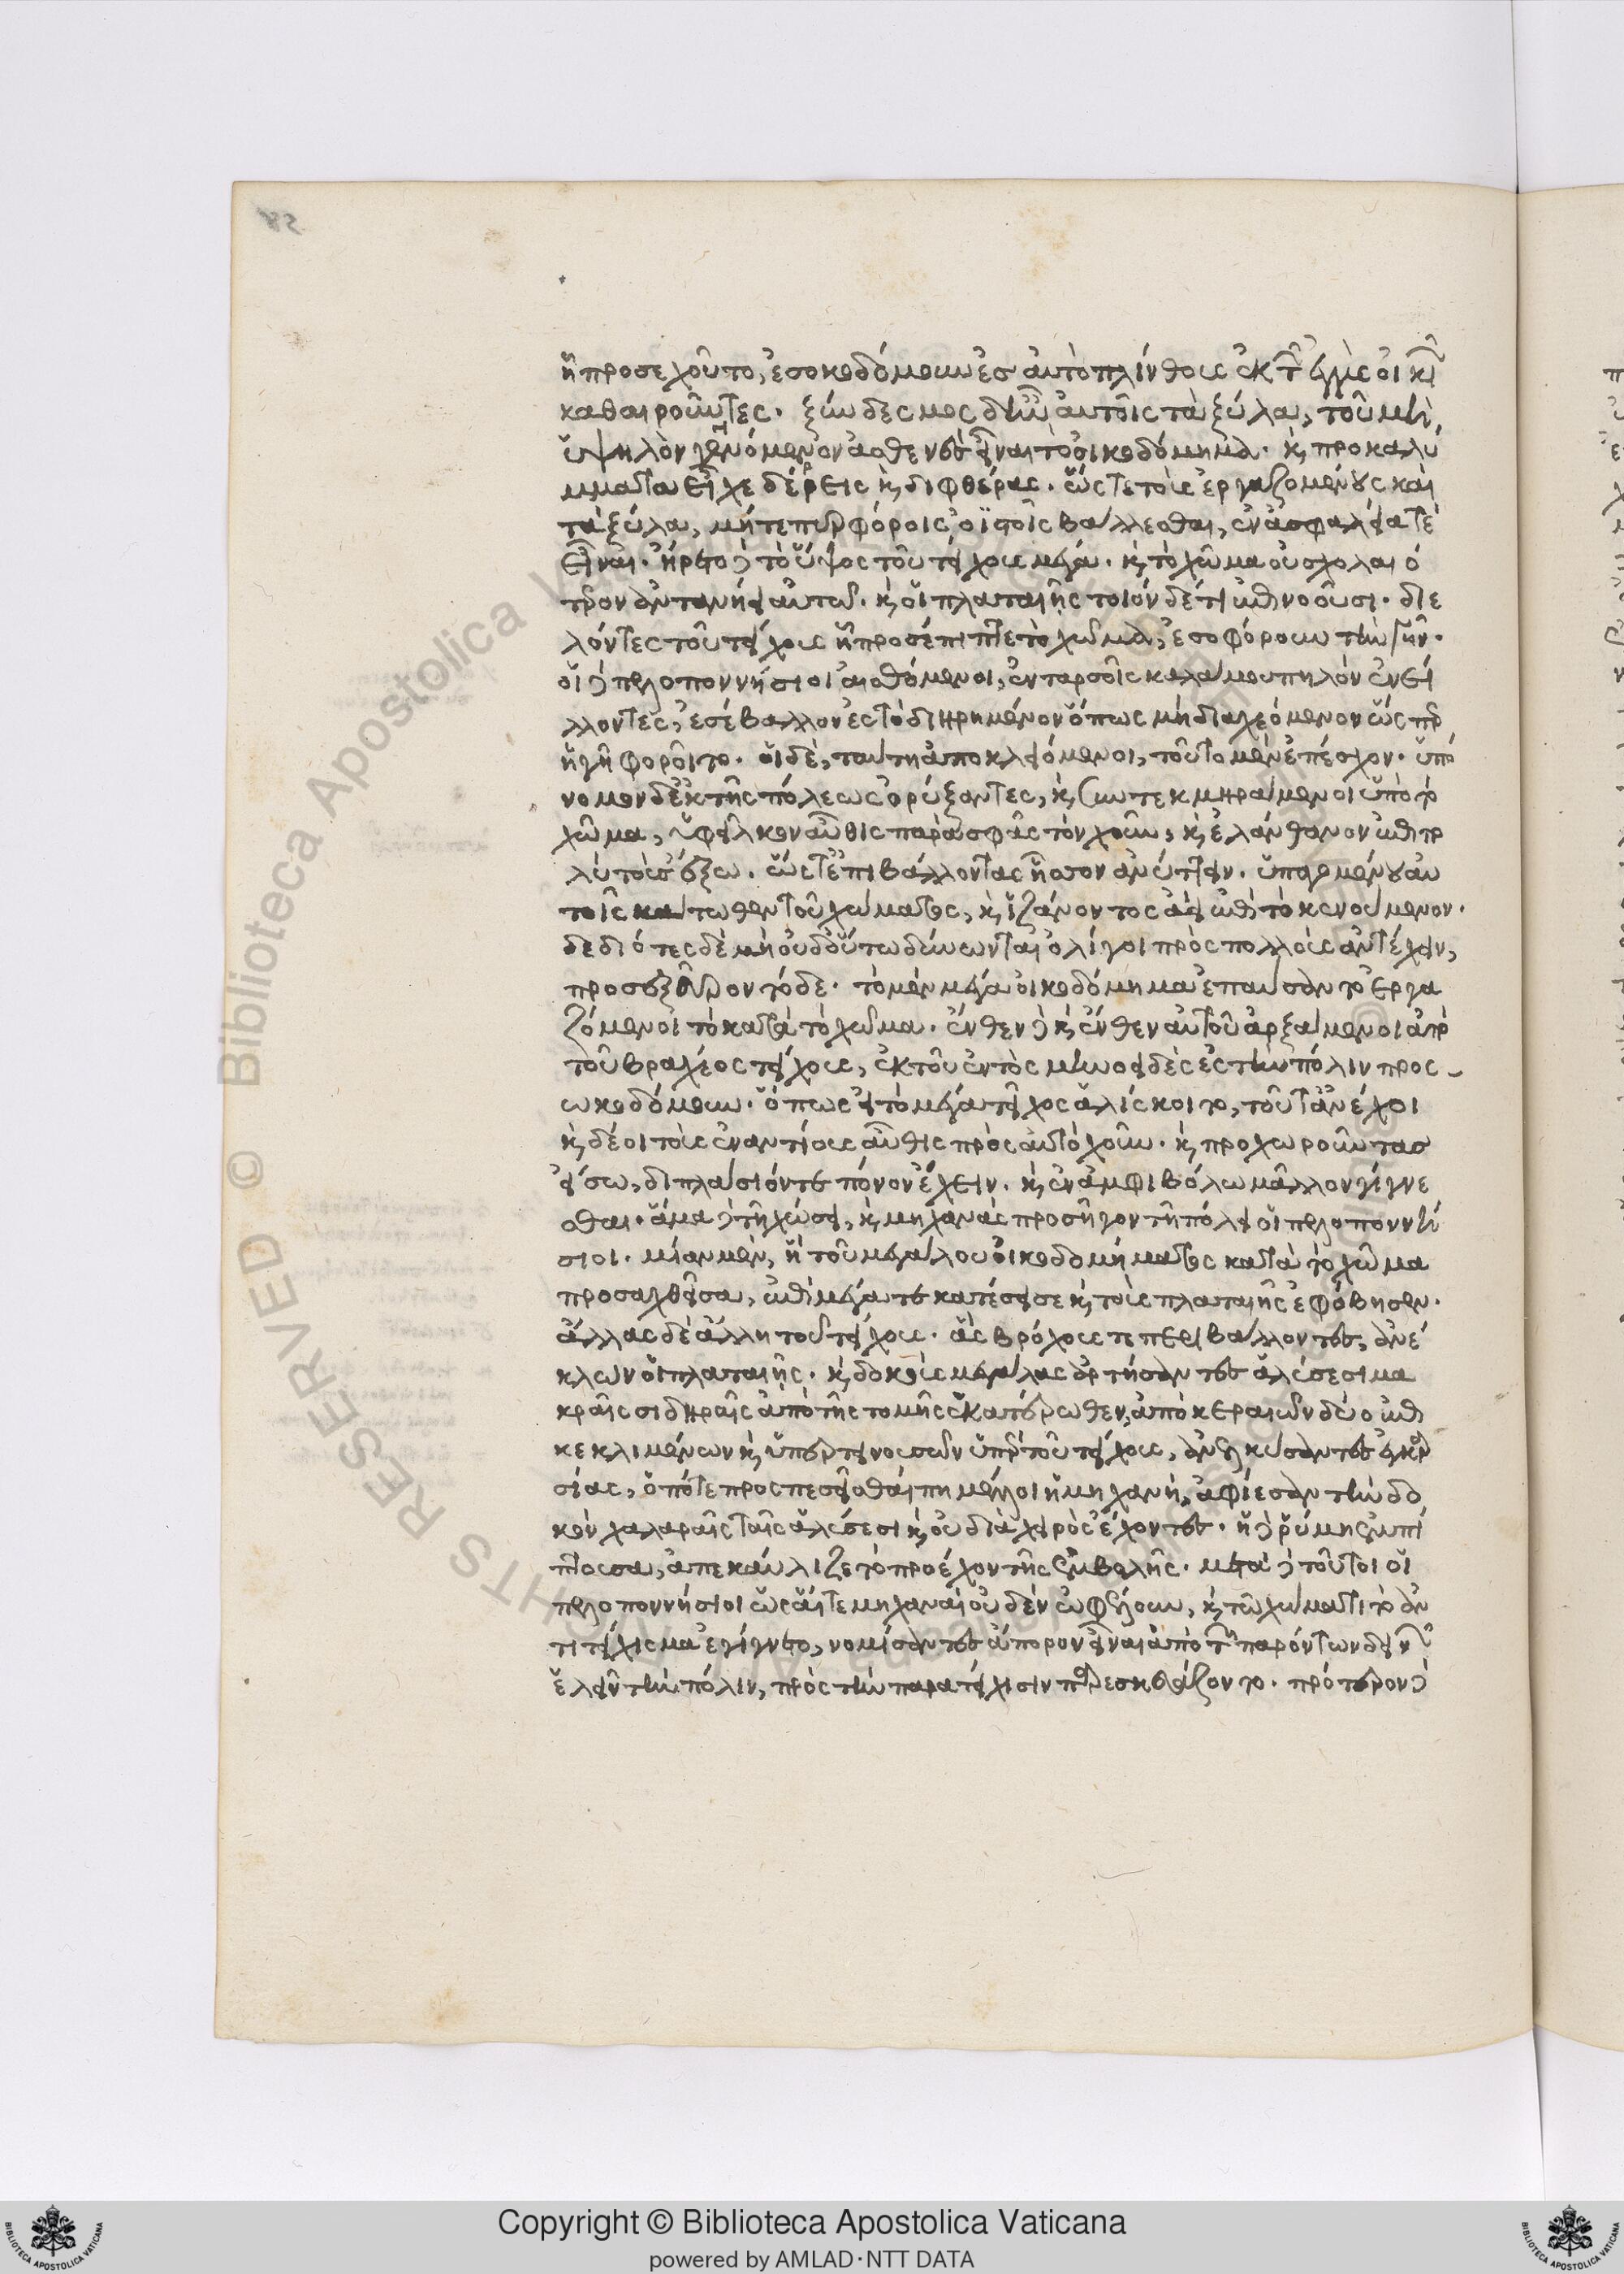 ἧ προσεχοῦτο, ἐσοικοδόμουν ἐς αὐτὸ πλίνθους ἐκ τῶν ἐγγὺς οἰκιῶν
καθαιροῦντες. ξύνδεσμος δ' ἦν αὐτοῖς τὰ ξύλα, τοῦ μὴ,
ὑψηλὸν γενόμενον ἀσθενὲς εἶναι τὸ οἰκοδόμημα. κ, προκαλύ
μματα εἶχε δέρρεις κ, διφθέρας. ὥστε τοὺς ἐργαζομένους καὶ
τὰ ξύλα, μήτε πυρφόροις οἰστοῖς βάλλεσθαι, ἐν ἀσφαλεία τὲ
εἶναι. ἤρετο δὲ τὸ ὕψος τοῦ τείχους μέγα. κ, τὸ χῶμα οὐ σχολαιό
τερον ἀντανήει αὐτῶ. κ, οἱ πλαταιῆς τοιόνδέ τι ἐπινοοῦσι. διε
λόντες τοῦ τείχους ἧ προσέπιπτε τὸ χῶμα, ἐσεφόρουν τὴν γῆν.
οἱ δὲ πελοποννήσιοι αἰσθόμενοι, ἐν ταρσοῖς καλάμου πηλὸν ἐνεί
λλοντες, ἐσέβαλλον ἐς τὸ διηρημένον ὅπως μὴ διαχεόμενον ὥσπερ
ἡ γῆ φοροῖτο. οἱ δὲ, ταύτη ἀποκλειόμενοι, τοῦτο μὲν ἐπέσχον. ὑπό
νομον δὲ ἐκ τῆς πόλεως ὀρύξαντες, κ, ξυντεκμηράμενοι ὑπὸ τὸ
χῶμα, ὑφεῖλκον αὖθις παρὰ σφᾶς τὸν χοῦν, κ, ἐλάνθανον ἐπὶ πο
λὺ τοὺς ἔξω. ὥστε ἐπιβάλλοντας ἧσσον ἀνύτειν. ὑπαγομένου αὐ
τοῖς κάτωθεν τοῦ χώματος, κ, ἱζάνοντος ἀεὶ ἐπὶ τὸ κενούμενον.
δεδιότες δὲ μὴ οὐδ' οὕτω δύνωνται ὀλίγοι πρὸς πολλοὺς ἀντέχειν,
προσεξεῦρον τόδε. τὸ μὲν μέγα οἰκοδόμημα ἐπαύσαντο ἐργα
ζόμενοι τὸ κατὰ τὸ χῶμα. ἔνθεν δὲ κ, ἔνθεν αὐτοῦ ἀρξάμενοι ἀπὸ
τοῦ βραχέος τείχους, ἐκ τοῦ ἐντὸς μηνοειδὲς ἐς τὴν πόλιν προς
ωκοδόμουν. ὅπως εἰ τὸ μέγα τεῖχος ἁλίσκοιτο, τοῦτ' ἀνέχοι
κ, δέοι τοὺς ἐναντίους αὖθις πρὸς αὐτὸ χοῦν. κ, προχωροῦντας
εἴσω, διπλάσιόν τε πόνον ἔχειν. κ, ἐν ἀμφιβόλω μᾶλλον γίγνε
σθαι. ἅμα δὲ τῆ χώσει, κ, μηχανὰς προσῆγον τῆ πόλει οἱ πελοποννή
σιοι. μίαν μὲν, ἣ τοῦ μεγάλου οἰκοδομήματος κατὰ τὸ χῶμα
προσαχθεῖσα, ἐπὶ μέγα τε κατέσεισε κ, τοὺς πλαταιῆς ἐφόβησεν.
ἄλλας δὲ ἄλλη τοῦ τείχους. ἃς βρόχους τε περιβάλλοντες, ἀνέ
κλων οἱ πλαταιῆς. κ, δοκοὺς μεγάλας ἀρτήσαντες ἁλύσεσι μα
κραῖς σιδηραῖς ἀπὸ τῆς τομῆς ἑκατέρωθεν, ἀπὸ κεραιῶν δύο ἐπι
κεκλιμένων κ, ὑπερτεινουσῶν ὑπὲρ τοῦ τείχους, ἀνελκύσαντες ἐγκαρ
σίας, ὁπότε προσπεσεῖσθαί πη μέλλοι ἡ μηχανὴ, ἀφίεσαν τὴν δο
κὸν χαλαραῖς ταῖς ἁλύσεσι κ, οὐ διὰ χειρὸς ἔχοντες. ἡ δὲ ῥύμη ἐμπί
πτουσα, ἀπεκαύλιζε τὸ προέχον τῆς ἐμβολῆς. μετὰ δὲ τοῦτο οἱ
πελοποννήσιοι ὡς αἵ τε μηχαναὶ οὐδὲν ὠφέλουν, κ, τῶ χώματι τὸ ἀν
τιτείχισμα ἐγίγνετο, νομίσαντες ἄπορον εἶναι ἀπὸ τῶν παρόντων δεινῶν
ἑλεῖν τὴν πόλιν, πρὸς τὴν παρατείχισιν παρεσκευάζοντο. πρότερον δὲ
Copyright © Biblioteca Apostolica Vaticana
powered by AMLAD·NTT DATA